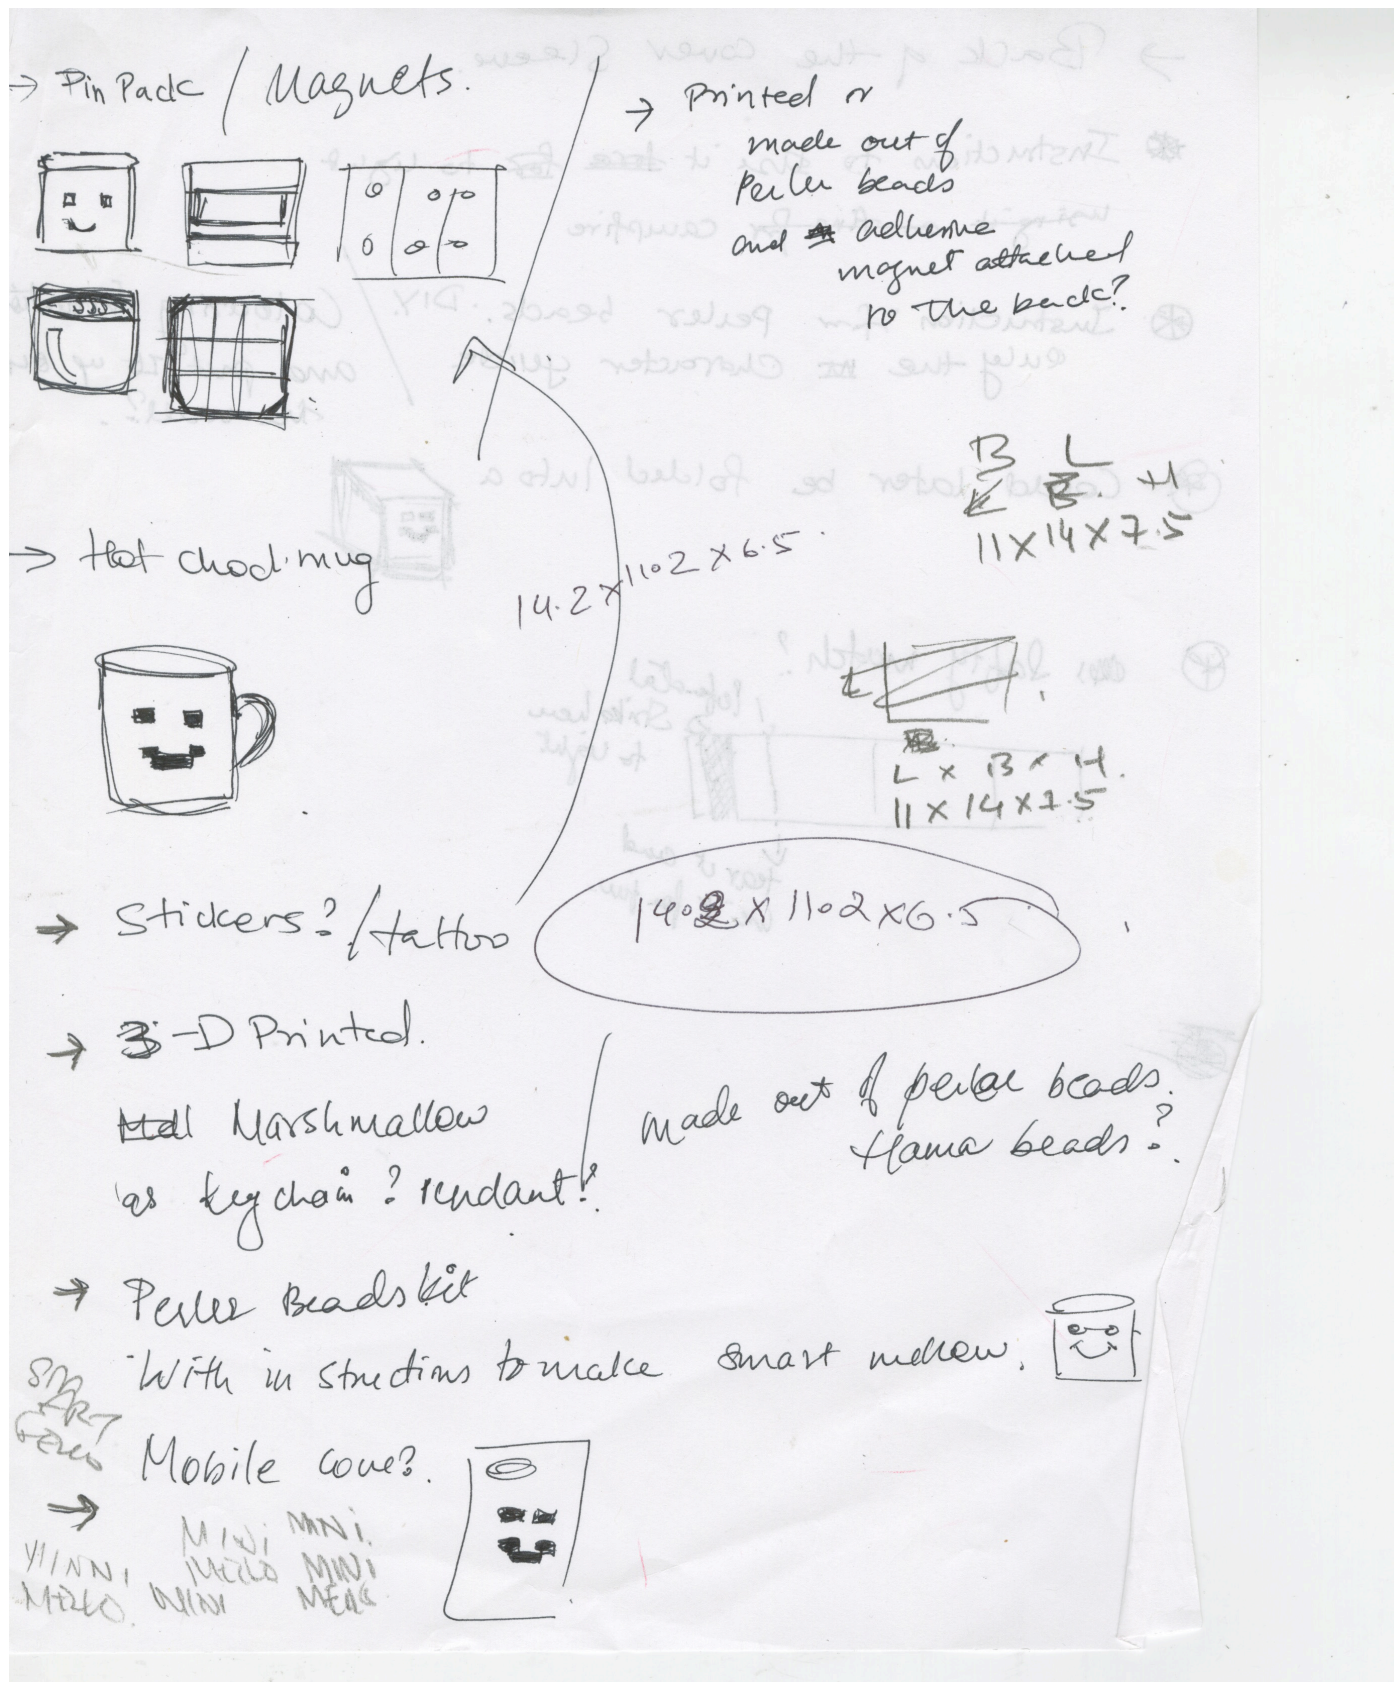 → Pin Pack / Magnets.
→ Printed or
made out of
Perler beads
and adhesive
magnet attached
to the back?
B L H
11 X 14 X 7.5
→ Hot chod. mug
14.2 x 11.2 x 6.5
L x B x H.
11 X 14 X 7.5
→ Stickers? / tattoo
14.2 x 11.2 x 6.5
→ 3-D Printed.
Marshmallow
as keychain? Pendant?
made out of perler beads.
Hama beads?
→ Perler Beads kit
With instructions to make smart mellow.
SMART
Mobile cover?
→
MINI MINI
MELLO MINI
MELLO MINI